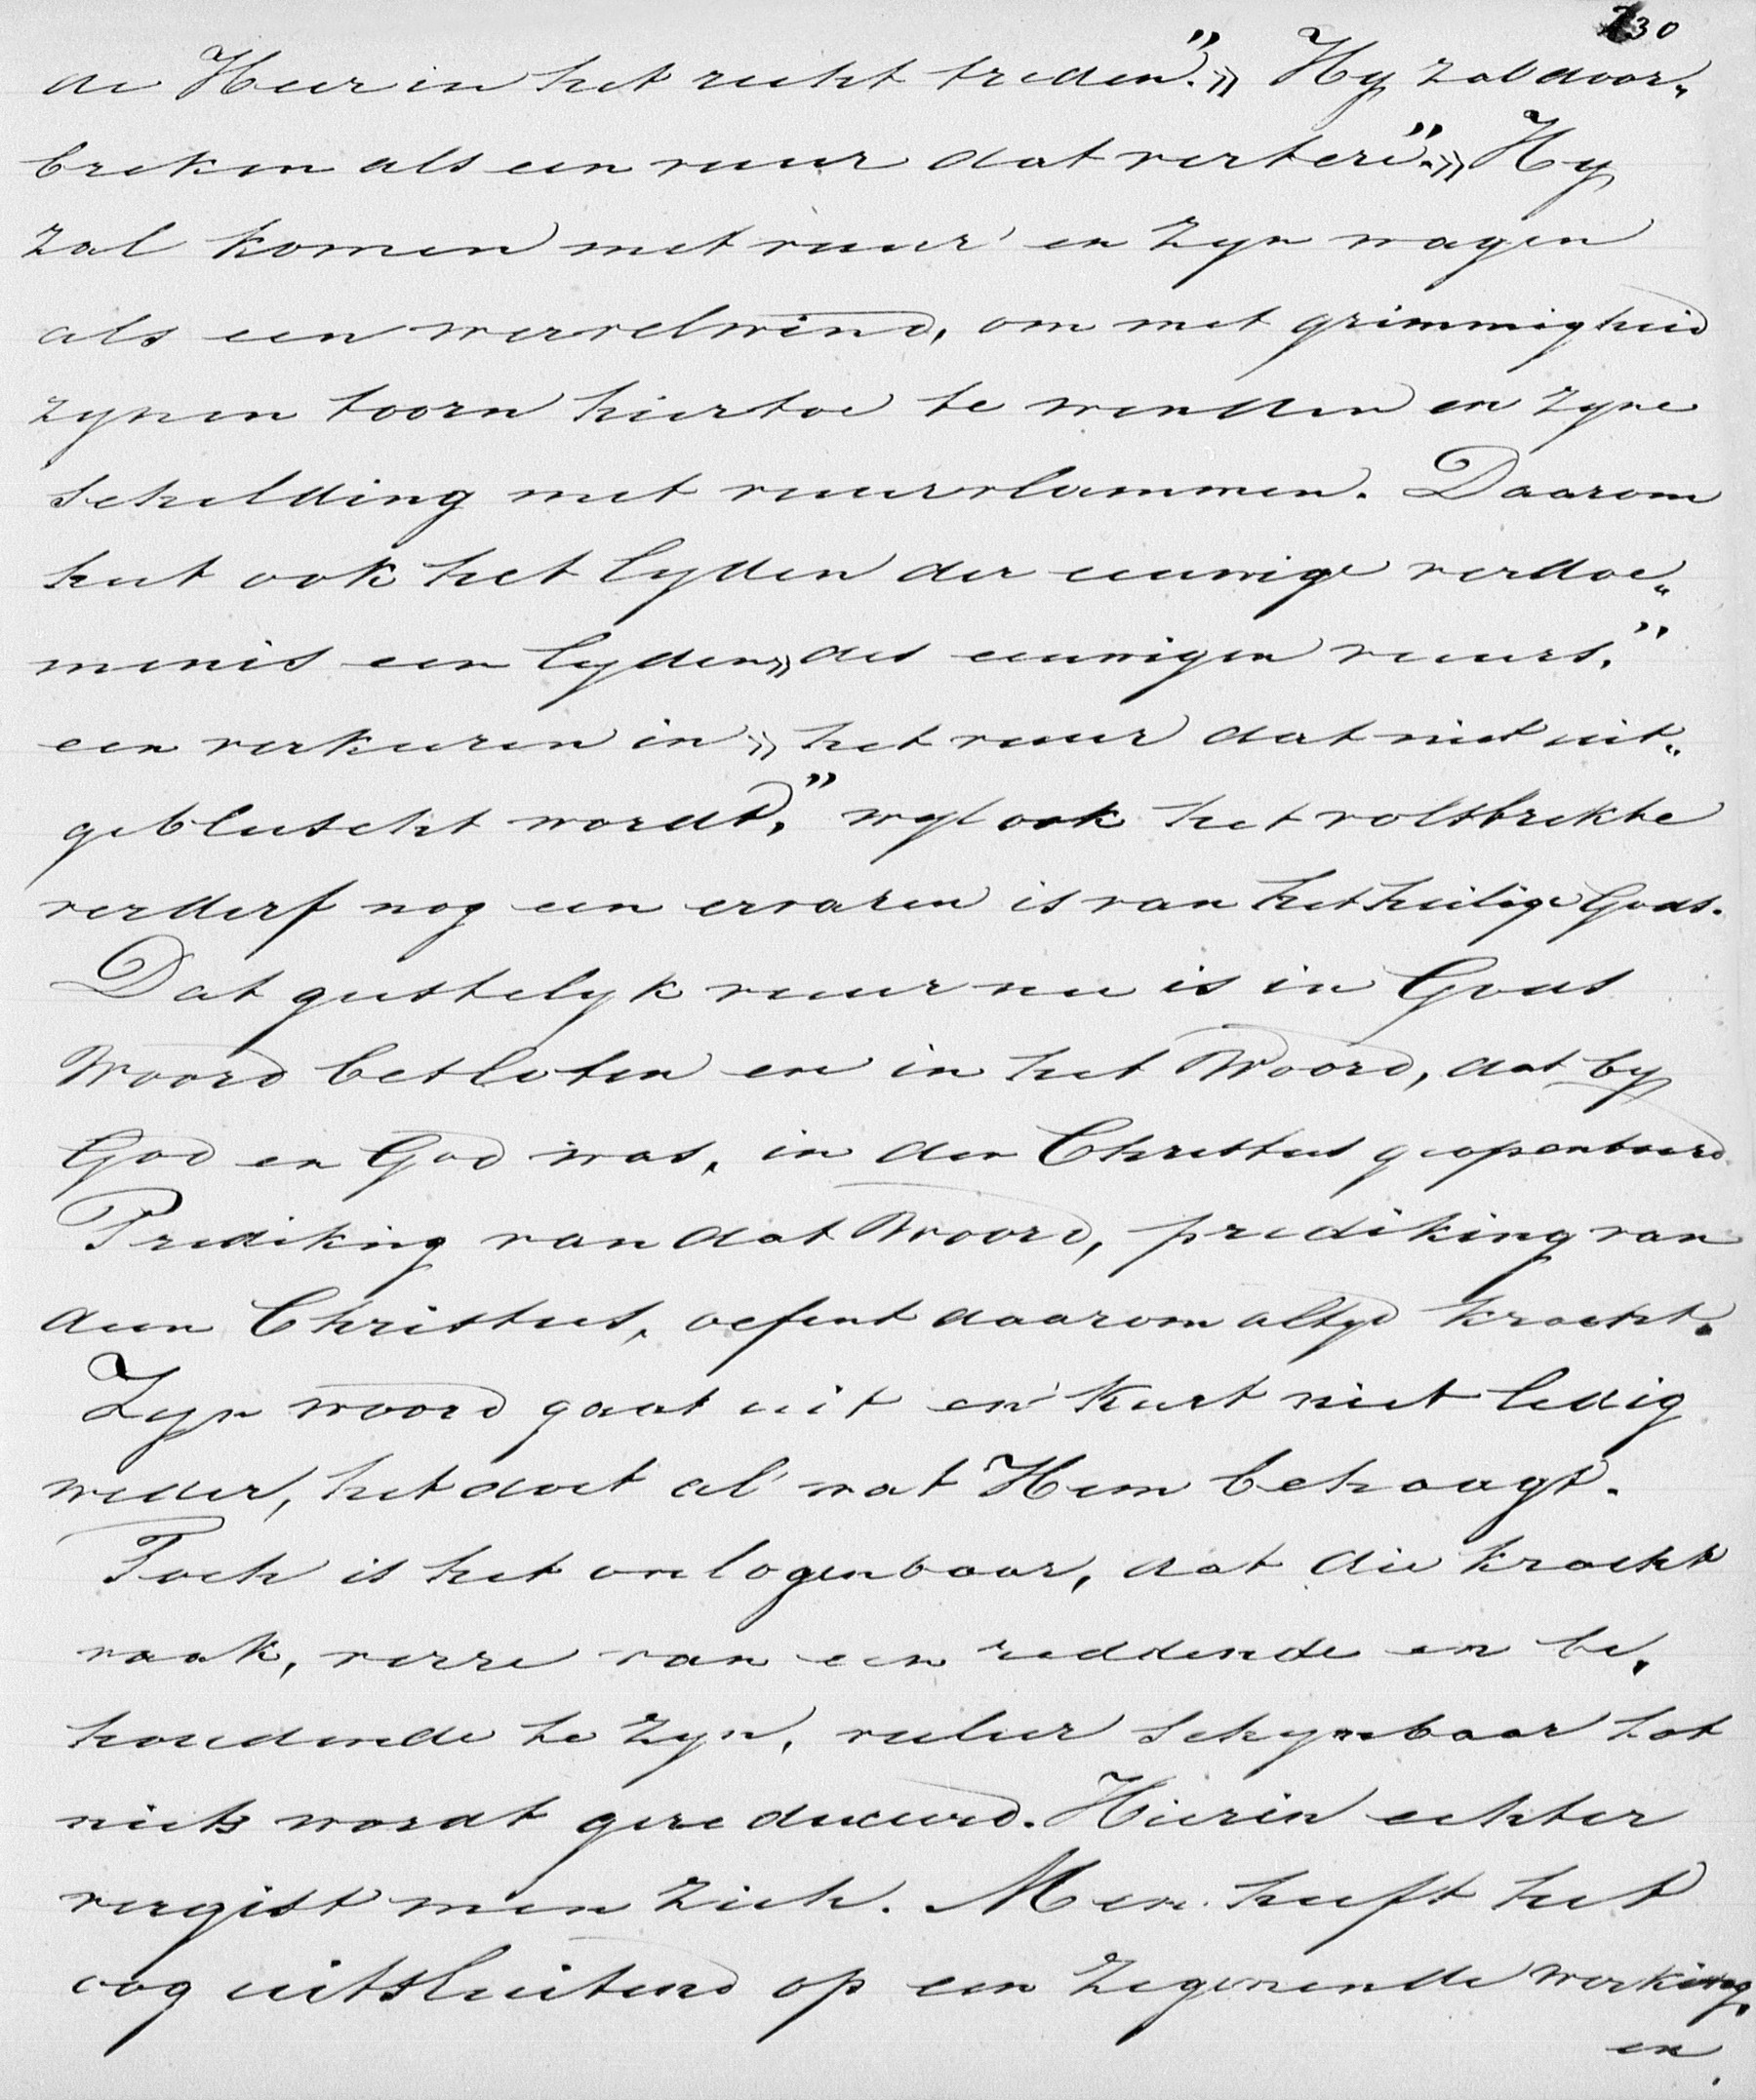 730
de Heer in het recht treden”. „Hy zal door„
breken als een vuur dat vertere”. „Hy
zal komen met vuur en Zyn wagen
als een wervelwind, om met grimmigheid
zynen toorn hiertoe te wenden en zyne
schelding met vuurvlammen. Daarom
heet ook het lyden der eeuwige verdoe„
menis een lyden „des eeuwigen vuurs,”
een verkeeren in „het vuur dat niet uit„
gebluscht wordt,” wyl ook het volstrekte
verderf nog een ervaren is van het heilige Gods.
Dat geestelyk vuur nu is in Gods
Woord besloten en in het Woord, dat by
God en God was, in den Christus geopenbaard.
Prediking van dat Woord, prediking van
dien Christus, oefent daarom altyd kracht.
Zyn woord gaat uit en keert niet ledig
weder, het doet al wat Hem behaagt.
Toch is het onlogenbaar, dat die kracht
vaak, verre van een reddende en be„
houdende te zyn, veeleer schynbaar tot
niets wordt gereduceerd. Hierin echter
vergist men zich. Men heeft het
oog uitsluitend op een zegenende werking,
en